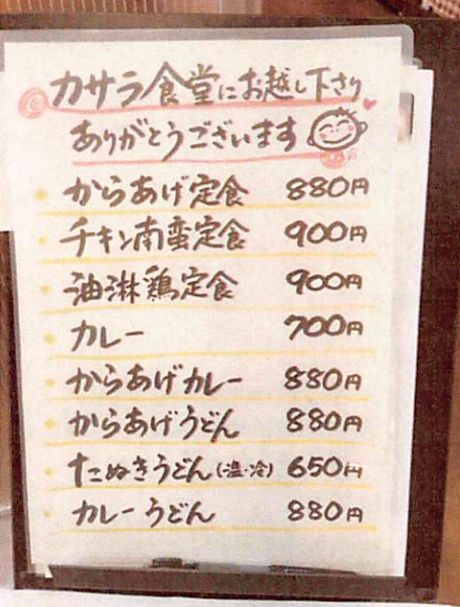 カサラ食堂にお越し下さり
ありがとうございます
からあげ定食 880円
チキン南蛮定食 900円
油淋鶏定食 900円
カレー 700円
からあげカレー 880円
からあげうどん 880円
たぬきうどん(温・冷) 650円
カレーうどん 880円